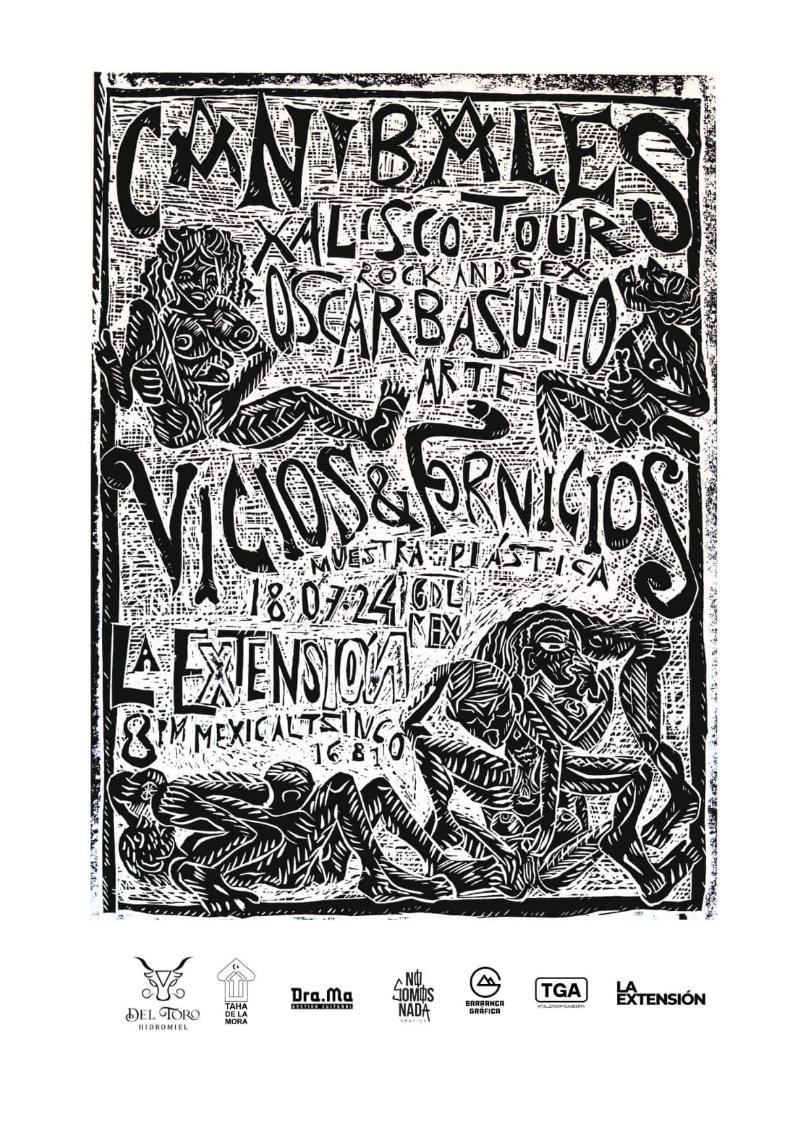 CANIBALES
XALISCO TOUR
ROCK AND SEX
OSCAR BASULTO
ARTE
VICIOS & FORNICIOS
MUESTRA PLÁSTICA
18.07.24 GDL
MEX
LA EXTENSIÓN
8 PM MEXICALTZINGO
16 8 10
DEL TORO
HIDROMIEL
TAHA
DE LA
MORA
Dra.Ma
GESTIÓN CULTURAL
NO
SOMOS
NADA
GRÁFICA
BARRANCA
GRÁFICA
TGA
LA
EXTENSIÓN